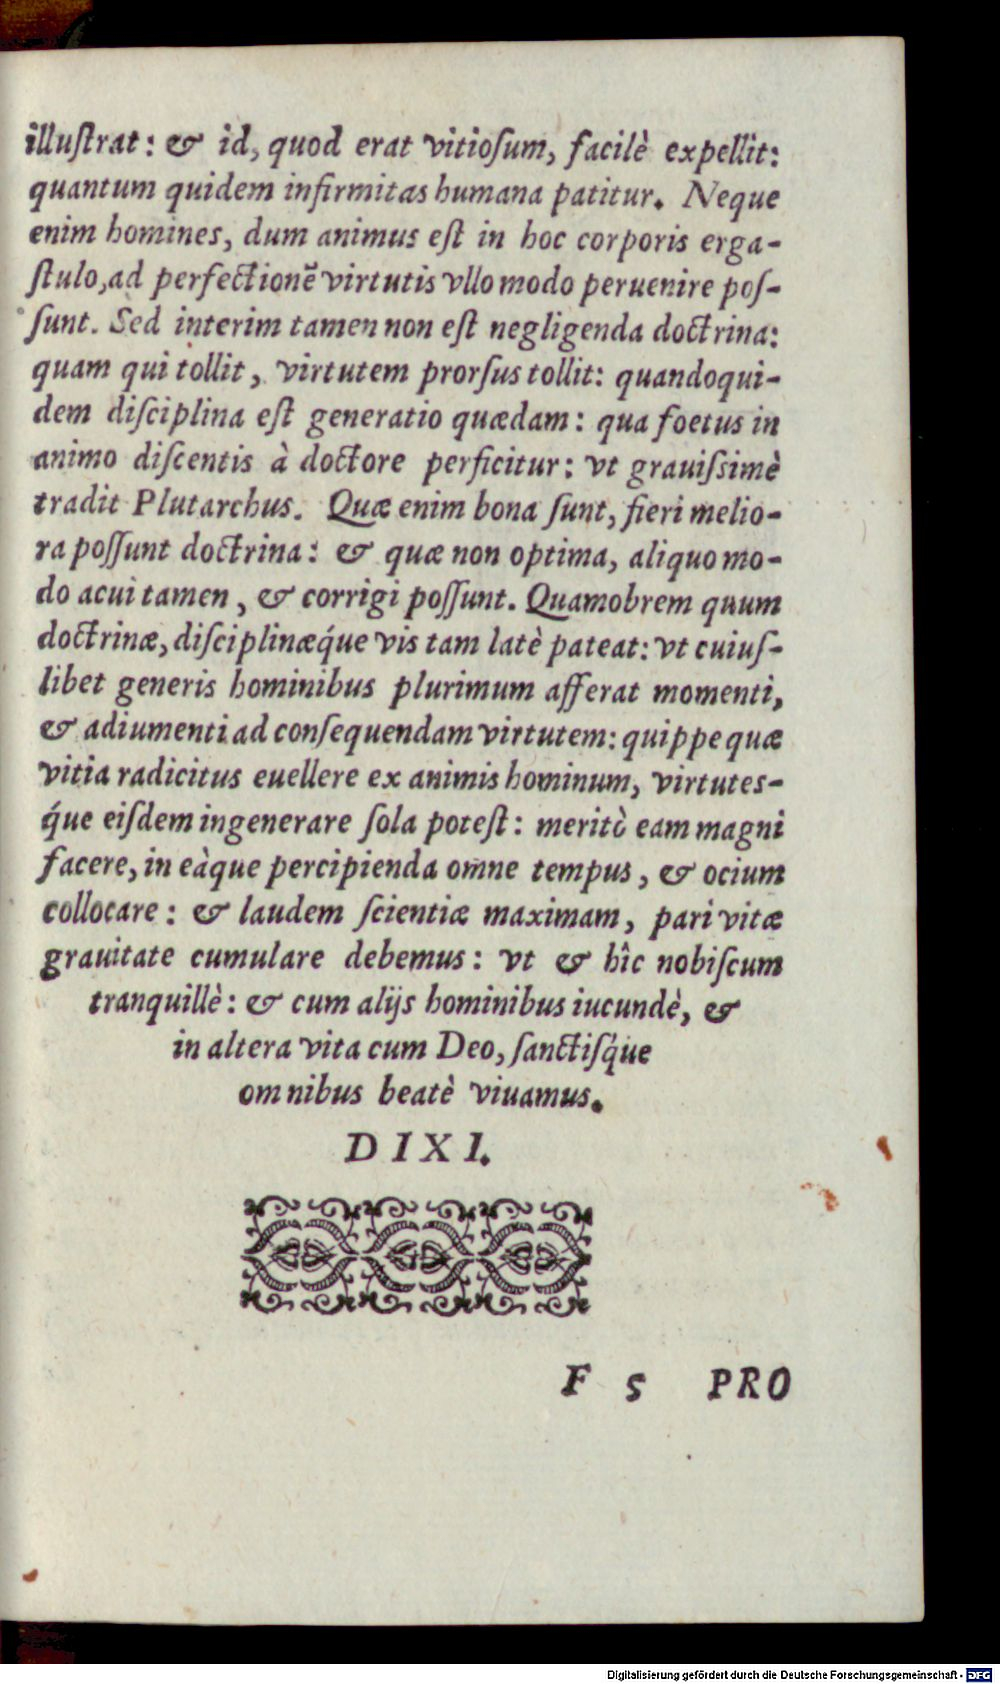 illuſtrat: & id, quod erat vitioſum, facilè expellit:
quantum quidem infirmitas humana patitur. Neque
enim homines, dum animus eſt in hoc corporis erga-
ſtulo, ad perfectionē virtutis vllo modo peruenire poſ-
ſunt. Sed interim tamen non eſt negligenda doctrina:
quam qui tollit, virtutem prorſus tollit: quandoqui-
dem diſciplina eſt generatio quædam: qua foetus in
animo diſcentis à doctore perficitur: vt grauiſsimè
tradit Plutarchus. Quæ enim bona ſunt, fieri melio-
ra poſſunt doctrina: & quæ non optima, aliquo mo-
do acui tamen, & corrigi poſſunt. Quamobrem quum
doctrinæ, diſciplinæq́ue vis tam latè pateat: vt cuiuſ-
libet generis hominibus plurimum afferat momenti,
& adiumenti ad conſequendam virtutem: quippe quæ
vitia radicitus euellere ex animis hominum, virtutes-
q́ue eiſdem ingenerare ſola poteſt: meritò eam magni
facere, in eàque percipienda omne tempus, & ocium
collocare: & laudem ſcientiæ maximam, pari vitæ
grauitate cumulare debemus: vt & hîc nobiſcum
tranquillè: & cum alijs hominibus iucundè, &
in altera vita cum Deo, ſanctiſq́ue
omnibus beatè viuamus.
DIXI.
F 5 PRO
Digitalisierung gefördert durch die Deutsche Forschungsgemeinschaft - DFG